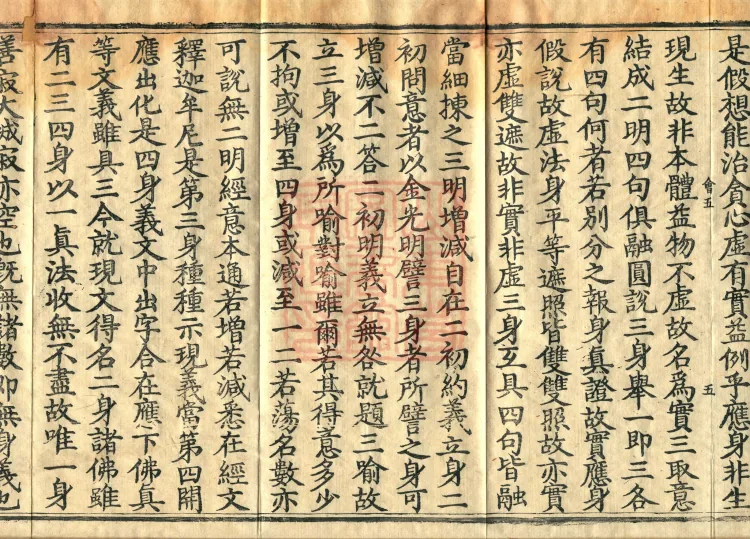 是假想能治貪心虛有實益例乎應身非生
現生故非本體益物不虛故名爲實三取意
會五
五
結成二明四句俱融圓說三身舉一即三各
有四句何者若別分之報身眞證故實應身
假說故虛法身平等遮照皆雙雙照故亦實
亦虛雙遮故非實非虛三身互具四句皆融
當細揀之三明增減自在二初約義立身二
初問意者以金光明譬三身者所譬之身可
增減不二答二初明義立無咎就題三喻故
立三身以爲所喻對喻雖爾若其得意多少
不拘或增至四身或減至一二若蕩名數亦
可說無二明經意本通若增若減悉在經文
釋迦牟尼是第三身種種示現義當第四開
應出化是四身義文中出字合在應下佛眞
等文義雖具三今就現文得名二身諸佛雖
有二三四身以一眞法收無不盡故唯一身
善寂大滅寂亦空也旣無諸數即無身義也